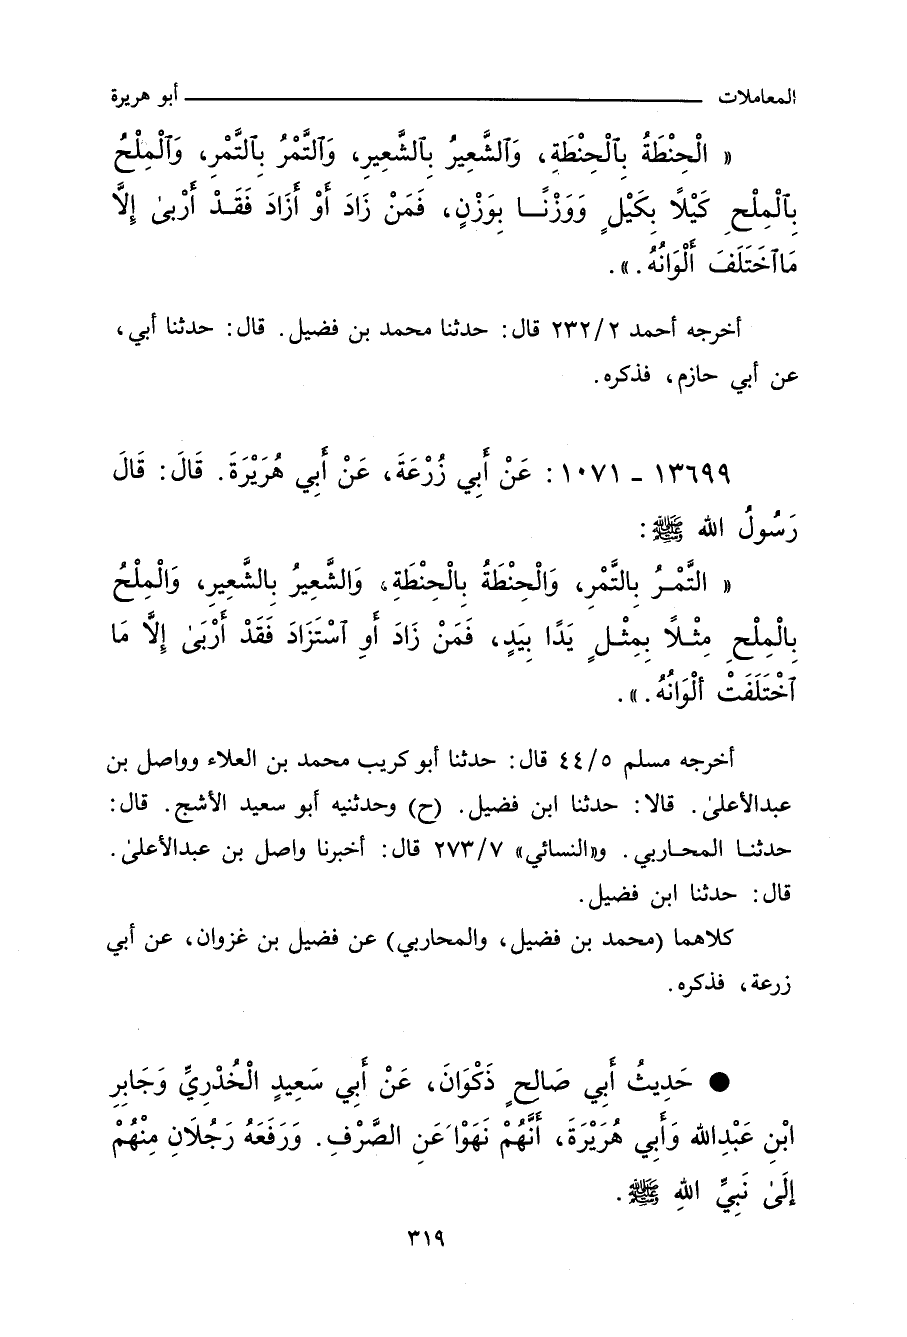 المعاملات ــــــــ أبو هريرة
« الْحِنْطَةُ بِٱلْحِنْطَةِ، وَٱلشَّعِيرُ بِٱلشَّعِيرِ، وَٱلتَّمْرُ بِٱلتَّمْرِ، وَٱلْمِلْحُ
بِٱلْمِلْحِ كَيْلًا بِكَيْلٍ وَوَزْنًا بِوَزْنٍ، فَمَنْ زَادَ أَوْ أَزَادَ فَقَدْ أَرْبىٰ إِلَّا
مَا ٱخْتَلَفَ أَلْوَانُهُ. ».
أخرجه أحمد ٢٣٢/٢ قال: حدثنا محمد بن فضيل. قال: حدثنا أبي،
عن أبي حازم، فذكره.
١٣٦٩٩ - ١٠٧١: عَنْ أَبِي زُرْعَةَ، عَنْ أَبِي هُرَيْرَةَ. قَالَ: قَالَ
رَسُولُ الله ﷺ:
« التَّمْرُ بِالتَّمْرِ، وَالْحِنْطَةُ بِالْحِنْطَةِ، وَالشَّعِيرُ بِالشَّعِيرِ، وَالْمِلْحُ
بِالْمِلْحِ مِثْلًا بِمِثْلٍ يَدًا بِيَدٍ، فَمَنْ زَادَ أَوِ ٱسْتَزَادَ فَقَدْ أَرْبَىٰ إِلَّا مَا
ٱخْتَلَفَتْ أَلْوَانُهُ. ».
أخرجه مسلم ٤٤/٥ قال: حدثنا أبو كريب محمد بن العلاء وواصل بن
عبدالأعلىٰ. قالا: حدثنا ابن فضيل. (ح) وحدثنيه أبو سعيد الأشج. قال:
حدثنا المحاربي. و«النسائي» ٢٧٣/٧ قال: أخبرنا واصل بن عبدالأعلىٰ.
قال: حدثنا ابن فضيل.
كلاهما (محمد بن فضيل، والمحاربي) عن فضيل بن غزوان، عن أبي
زرعة، فذكره.
● حَدِيثُ أَبِي صَالِحٍ ذَكْوَانَ، عَنْ أَبِي سَعِيدٍ الْخُدْرِيِّ وَجَابِرِ
ابْنِ عَبْدِالله وَأَبِي هُرَيْرَةَ، أَنَّهُمْ نَهَوْا عَنِ الصَّرْفِ. وَرَفَعَهُ رَجُلَانِ مِنْهُمْ
إِلَىٰ نَبِيِّ اللهِ ﷺ.
٣١٩